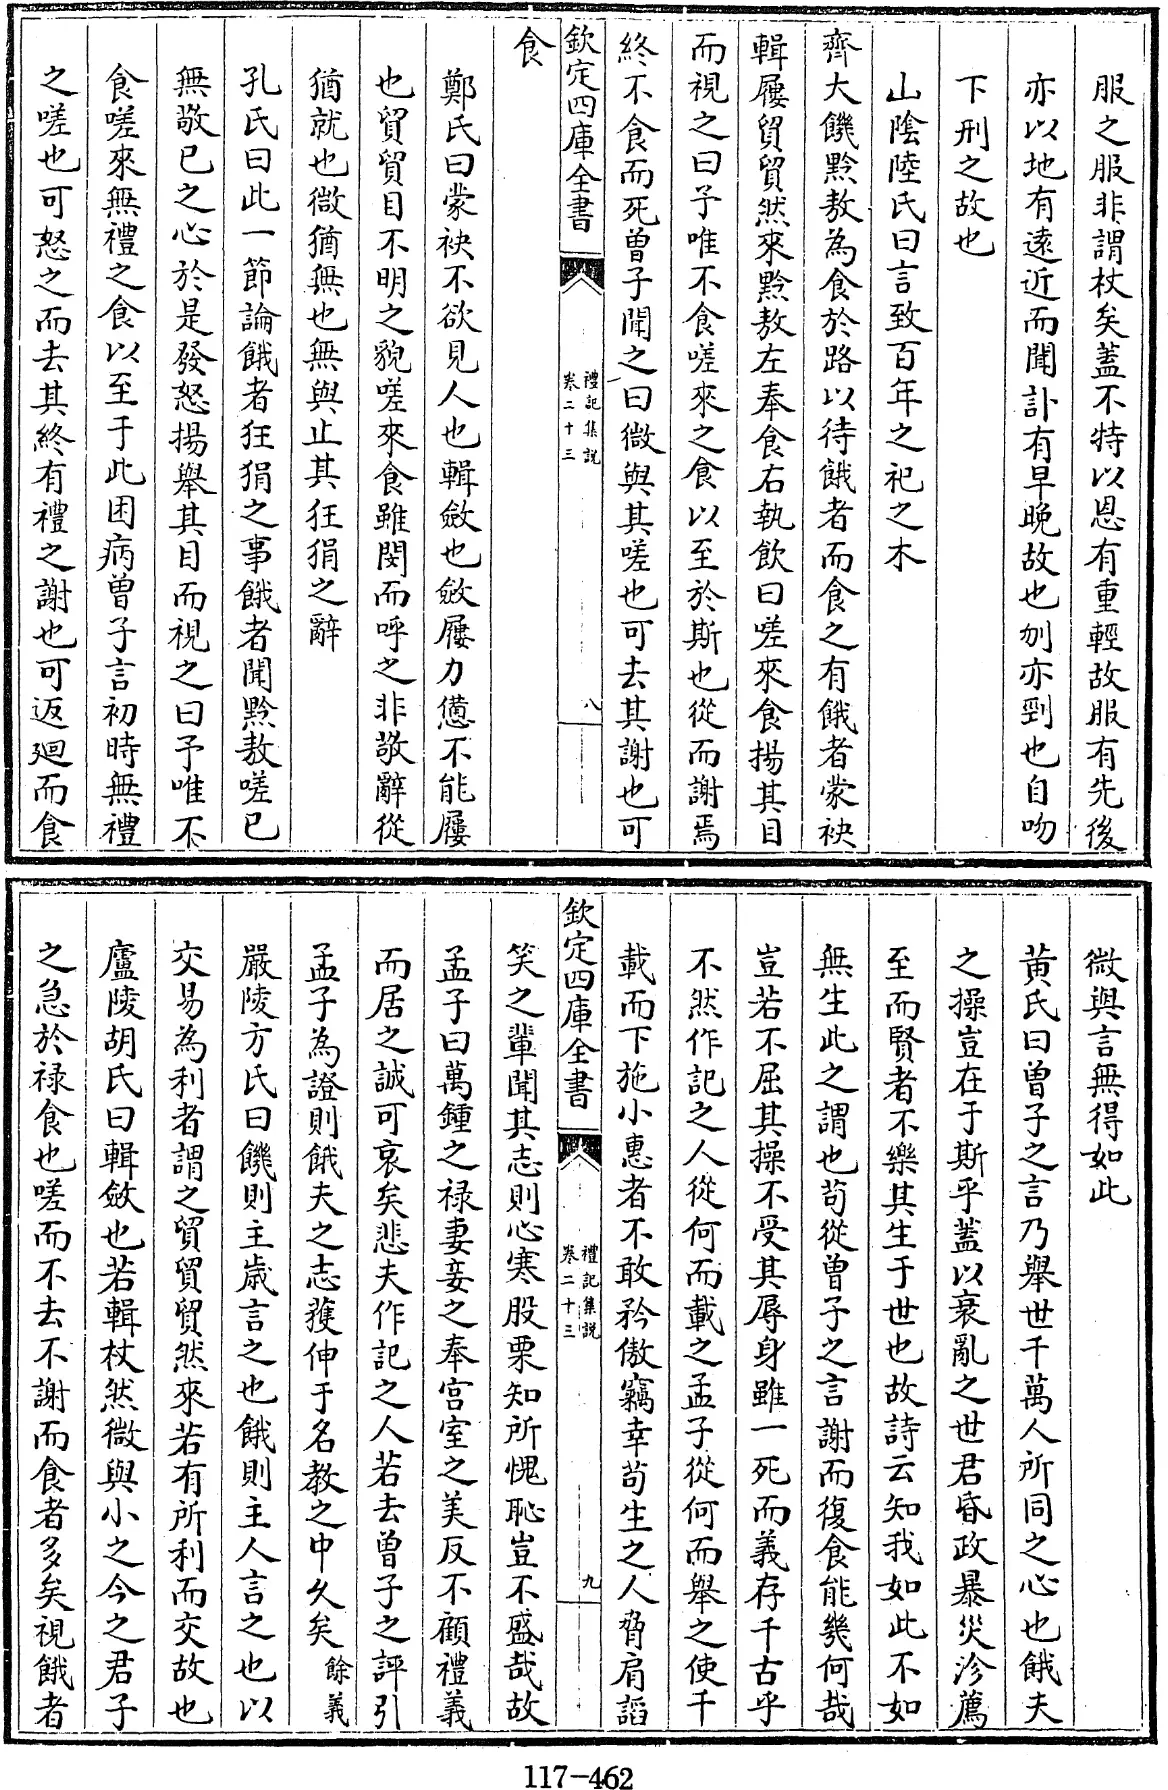 服之服非謂杖矣蓋不特以恩有重輕故服有先後
亦以地有遠近而聞訃有早晚故也刎亦剄也自吻
下刑之故也
山陰陸氏曰言致百年之祀之木
齊大饑黔敖為食於路以待餓者而食之有餓者蒙袂
輯屨貿貿然來黔敖左奉食右執飲曰嗟來食揚其目
而視之曰予唯不食嗟來之食以至於斯也從而謝焉
終不食而死曾子聞之曰微與其嗟也可去其謝也可
欽定四庫全書
禮記集說
卷二十三
八
食
鄭氏曰蒙袂不欲見人也輯斂也斂屨力憊不能屨
也貿貿目不明之貌嗟來食雖閔而呼之非敬辭從
猶就也微猶無也無與止其狂狷之辭
孔氏曰此一節論餓者狂狷之事餓者聞黔敖嗟已
無敬已之心於是發怒揚舉其目而視之曰予唯不
食嗟來無禮之食以至于此困病曾子言初時無禮
之嗟也可怒之而去其終有禮之謝也可返迴而食
微與言無得如此
黃氏曰曾子之言乃舉世千萬人所同之心也餓夫
之操豈在于斯乎蓋以衰亂之世君昏政暴災沴薦
至而賢者不樂其生于世也故詩云知我如此不如
無生此之謂也苟從曾子之言謝而復食能幾何哉
豈若不屈其操不受其辱身雖一死而義存千古乎
不然作記之人從何而載之孟子從何而舉之使千
載而下施小惠者不敢矜傲竊幸苟生之人脅肩諂
欽定四庫全書
禮記集說
卷二十三
九
笑之輩聞其志則心寒股栗知所愧恥豈不盛哉故
孟子曰萬鍾之祿妻妾之奉宮室之美反不顧禮義
而居之誠可哀矣悲夫作記之人若去曾子之評引
孟子為證則餓夫之志獲伸于名教之中久矣餘義
嚴陵方氏曰饑則主歲言之也餓則主人言之也以
交易為利者謂之貿貿貿然來若有所利而交故也
廬陵胡氏曰輯斂也若輯杖然微與小之今之君子
之急於祿食也嗟而不去不謝而食者多矣視餓者
117-462